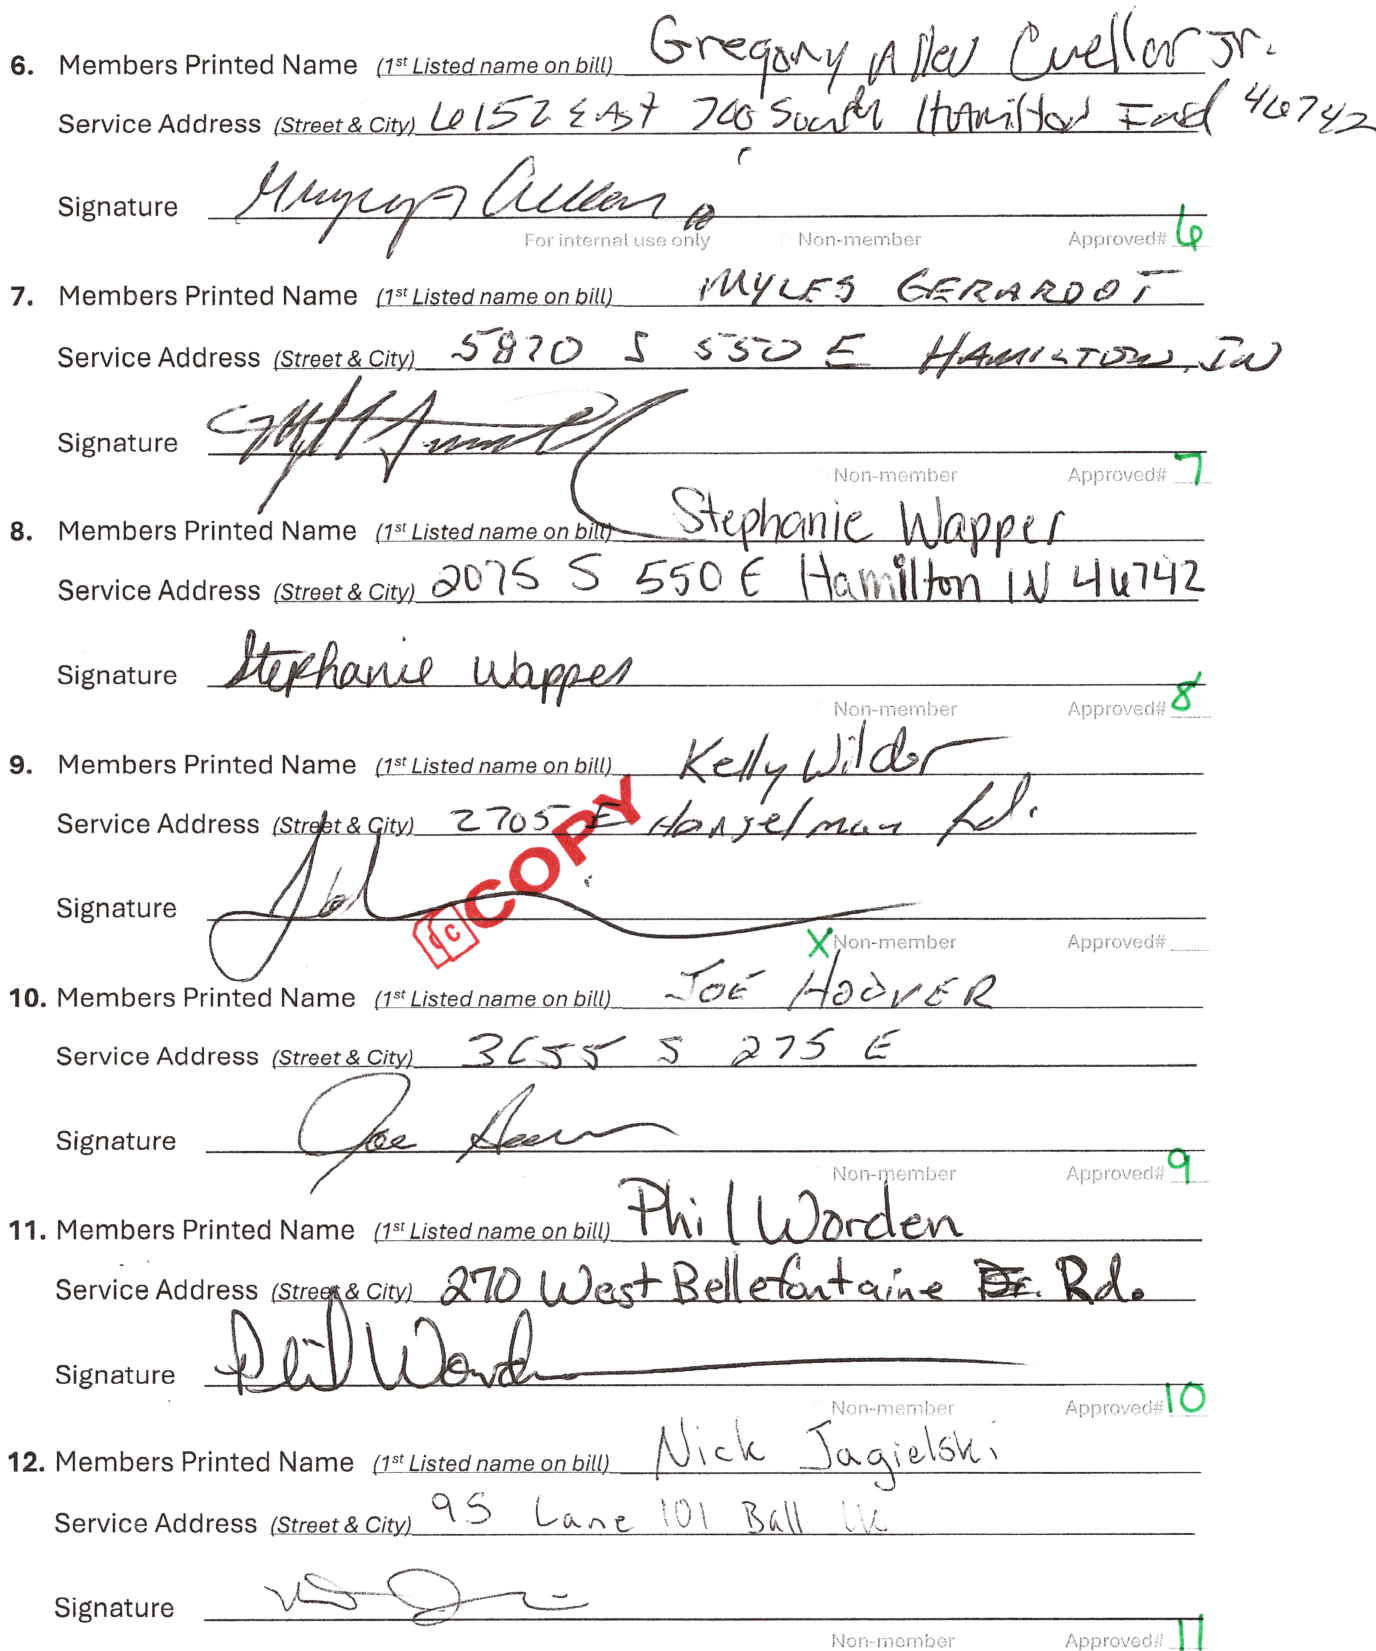 6. Members Printed Name (1st Listed name on bill) Gregory Allen Cuellar Jr.
Service Address (Street & City) 6152 East 700 South Hamilton Ind 46742
Signature
For internal use only Non-member Approved# 6
7. Members Printed Name (1st Listed name on bill) MYLES GERARDOT
Service Address (Street & City) 5870 S 550 E HAMILTON, IN
Signature
Non-member Approved# 7
8. Members Printed Name (1st Listed name on bill) Stephanie Wapper
Service Address (Street & City) 2075 S 550 E Hamilton IN 46742
Signature Stephanie Wapper
Non-member Approved# 8
9. Members Printed Name (1st Listed name on bill) Kelly Wilder
Service Address (Street & City) 2705 E Hanselman Rd.
COPY
Signature
X Non-member Approved#
10. Members Printed Name (1st Listed name on bill) JOE HOOVER
Service Address (Street & City) 3655 S 275 E
Signature Joe Hoover
Non-member Approved# 9
11. Members Printed Name (1st Listed name on bill) Phil Worden
Service Address (Street & City) 270 West Bellefontaine Dr. Rd.
Signature Phil Worden
Non-member Approved# 10
12. Members Printed Name (1st Listed name on bill) Nick Jagielski
Service Address (Street & City) 95 Lane 101 Ball Lk
Signature
Non-member Approved# 11